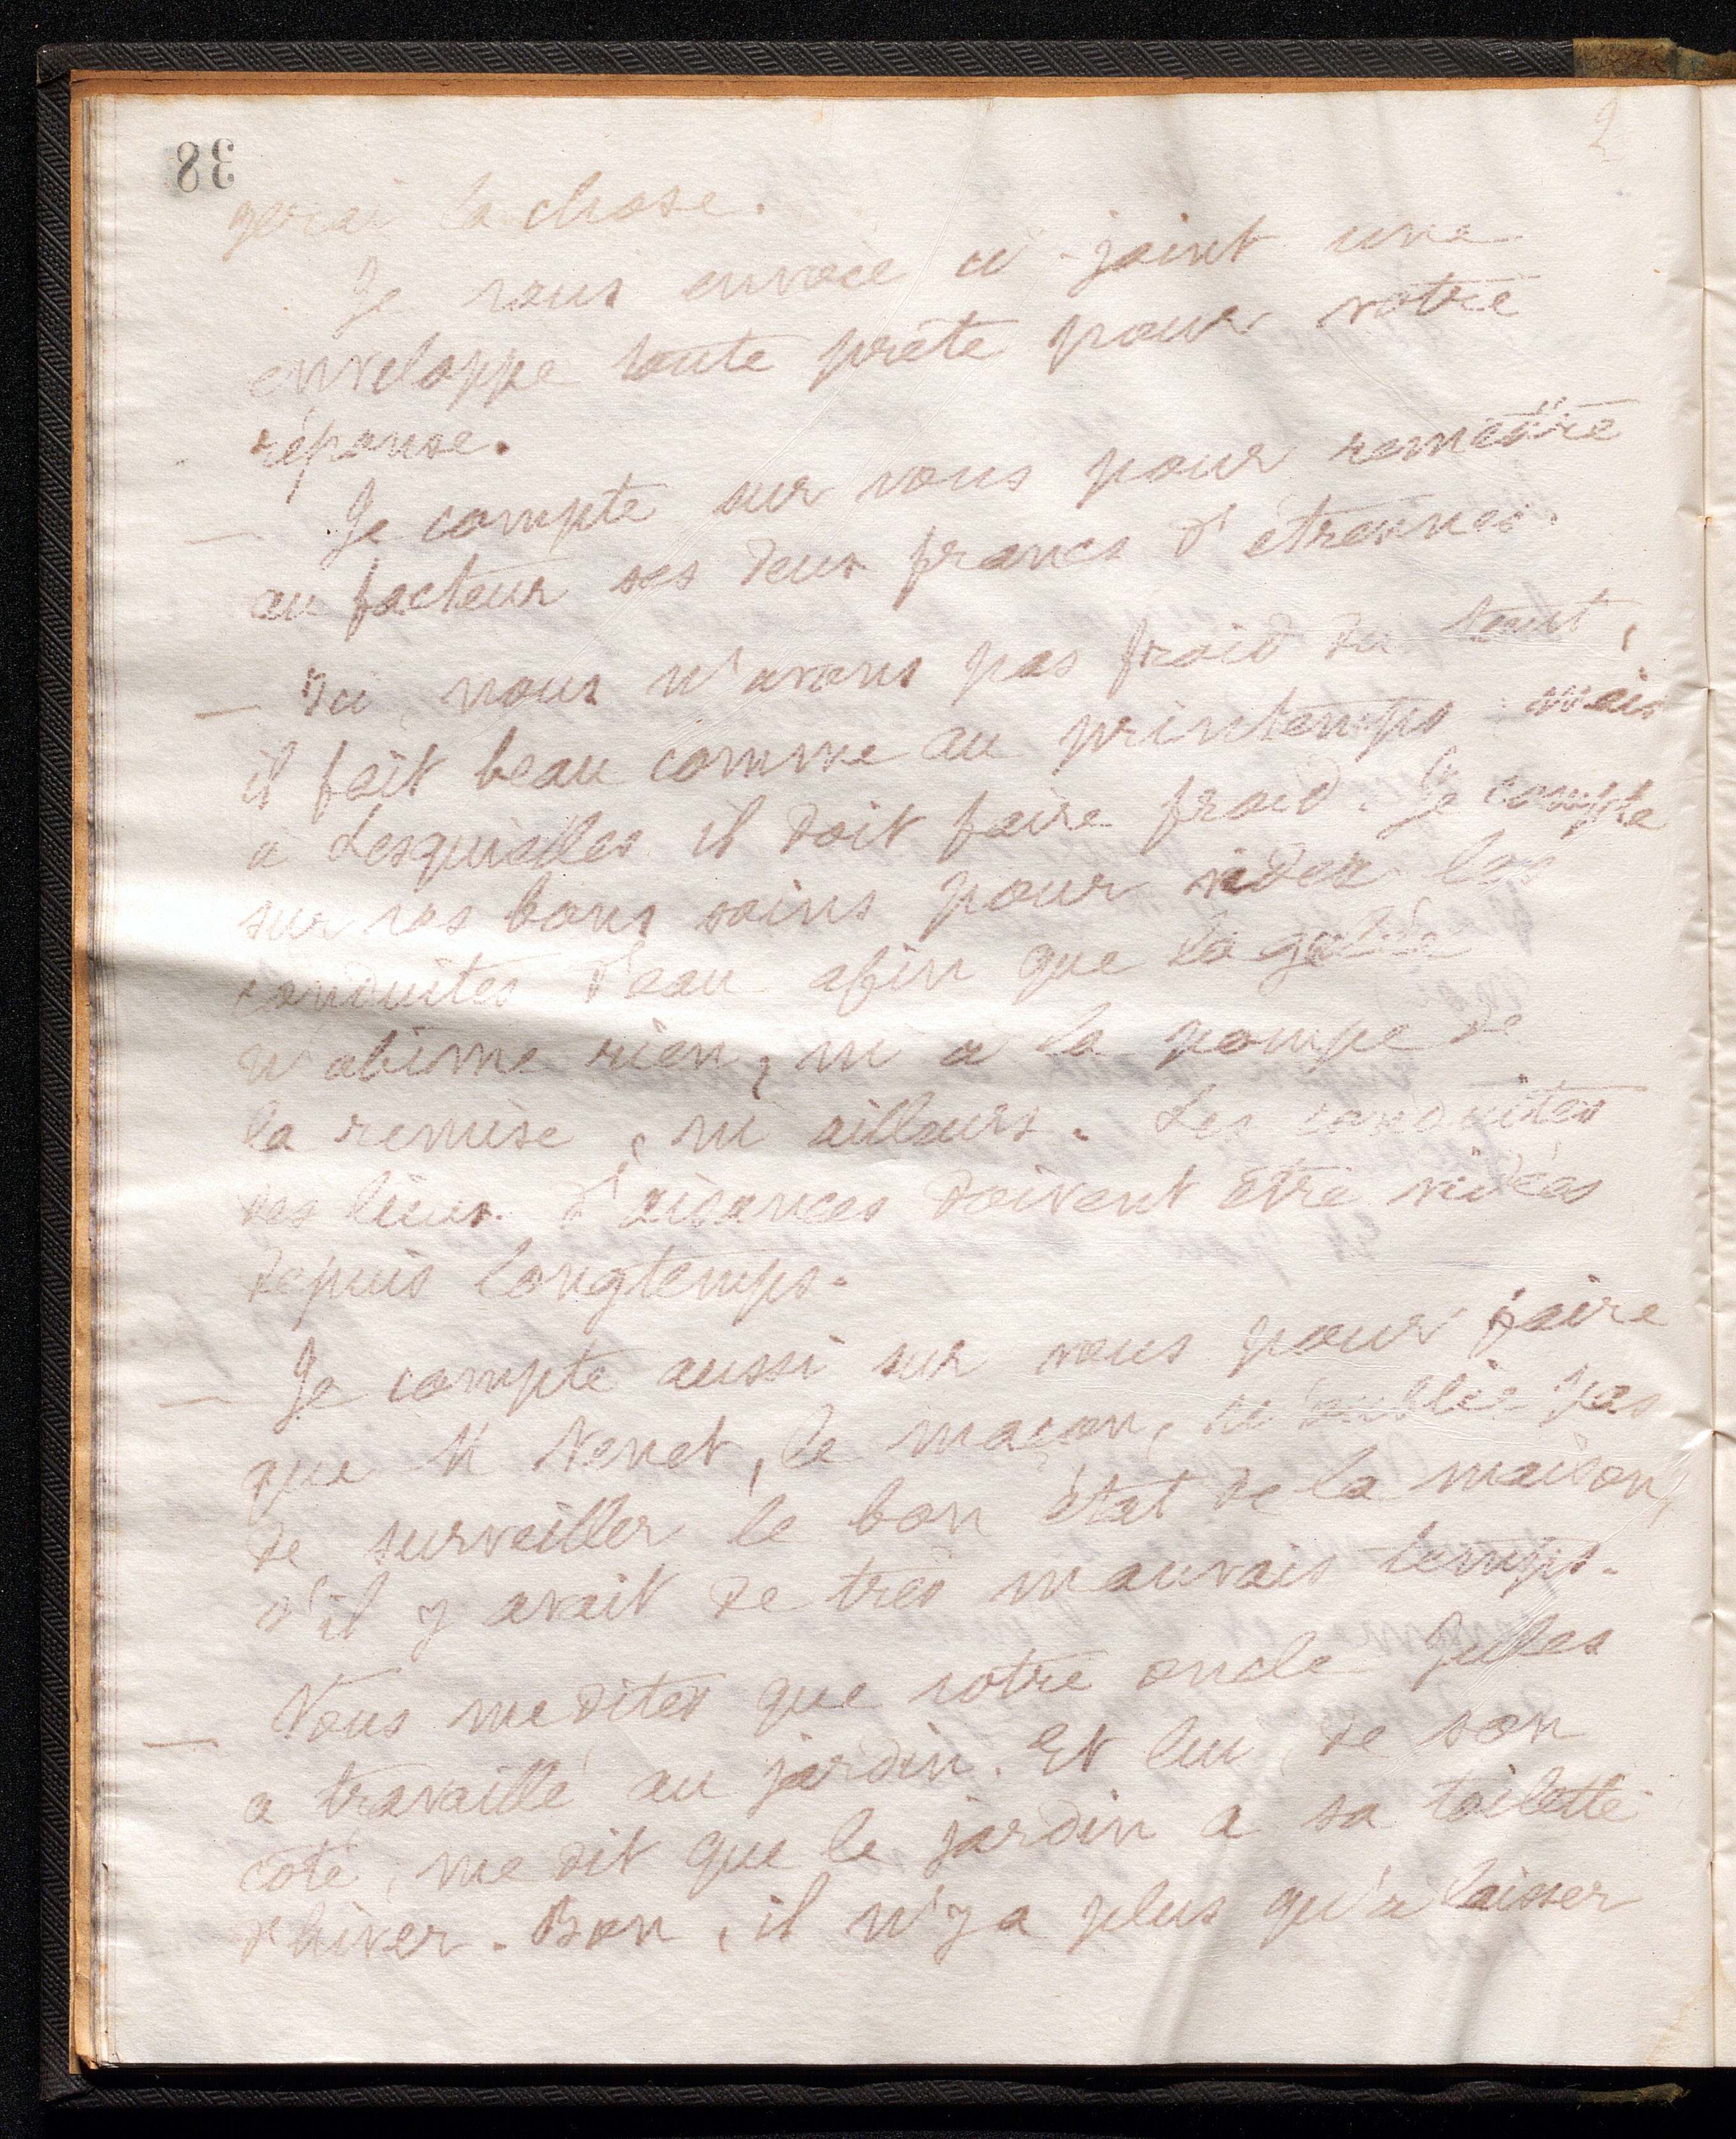 38
2
gerai la chose.
Je vous envoie ci-joint une
enveloppe toute prête pour votre
réponse.
— Je compte sur vous pour remettre
au facteur ses deux francs d'étrennes.
— Ici, nous n'avons pas froid du tout,
il fait beau comme au printemps mais
à Lesquielles il doit faire froid. Je compte
sur vos bons soins pour vider les
conduites d'eau afin que la gelée
n'abime rien, ni à la pompe de
la remise, ni ailleurs. Les conduites
des lieux d'aisances doivent être vidées
depuis longtemps.
— Je compte aussi sur vous pour faire
que M Venet, le maçon, n'oublie pas
de surveiller le bon état de la maison,
s'il y avait de très mauvais temps.
— Vous me dites que votre oncle Jules
a travaillé au jardin. Et lui, de son
côté, me dit que le jardin a sa toilette
d'hiver. Bon, il n'y a plus qu'à laisser